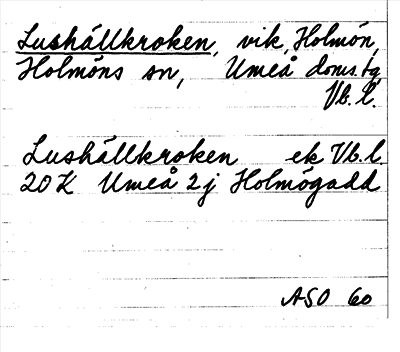 Lushällkroken, vik, Holmön,
Holmöns sn, Umeå doms. tg,
Vb. l.
Lushällkroken ek Vb. l.
20 K Umeå 2 j Holmögadd
ASO 60